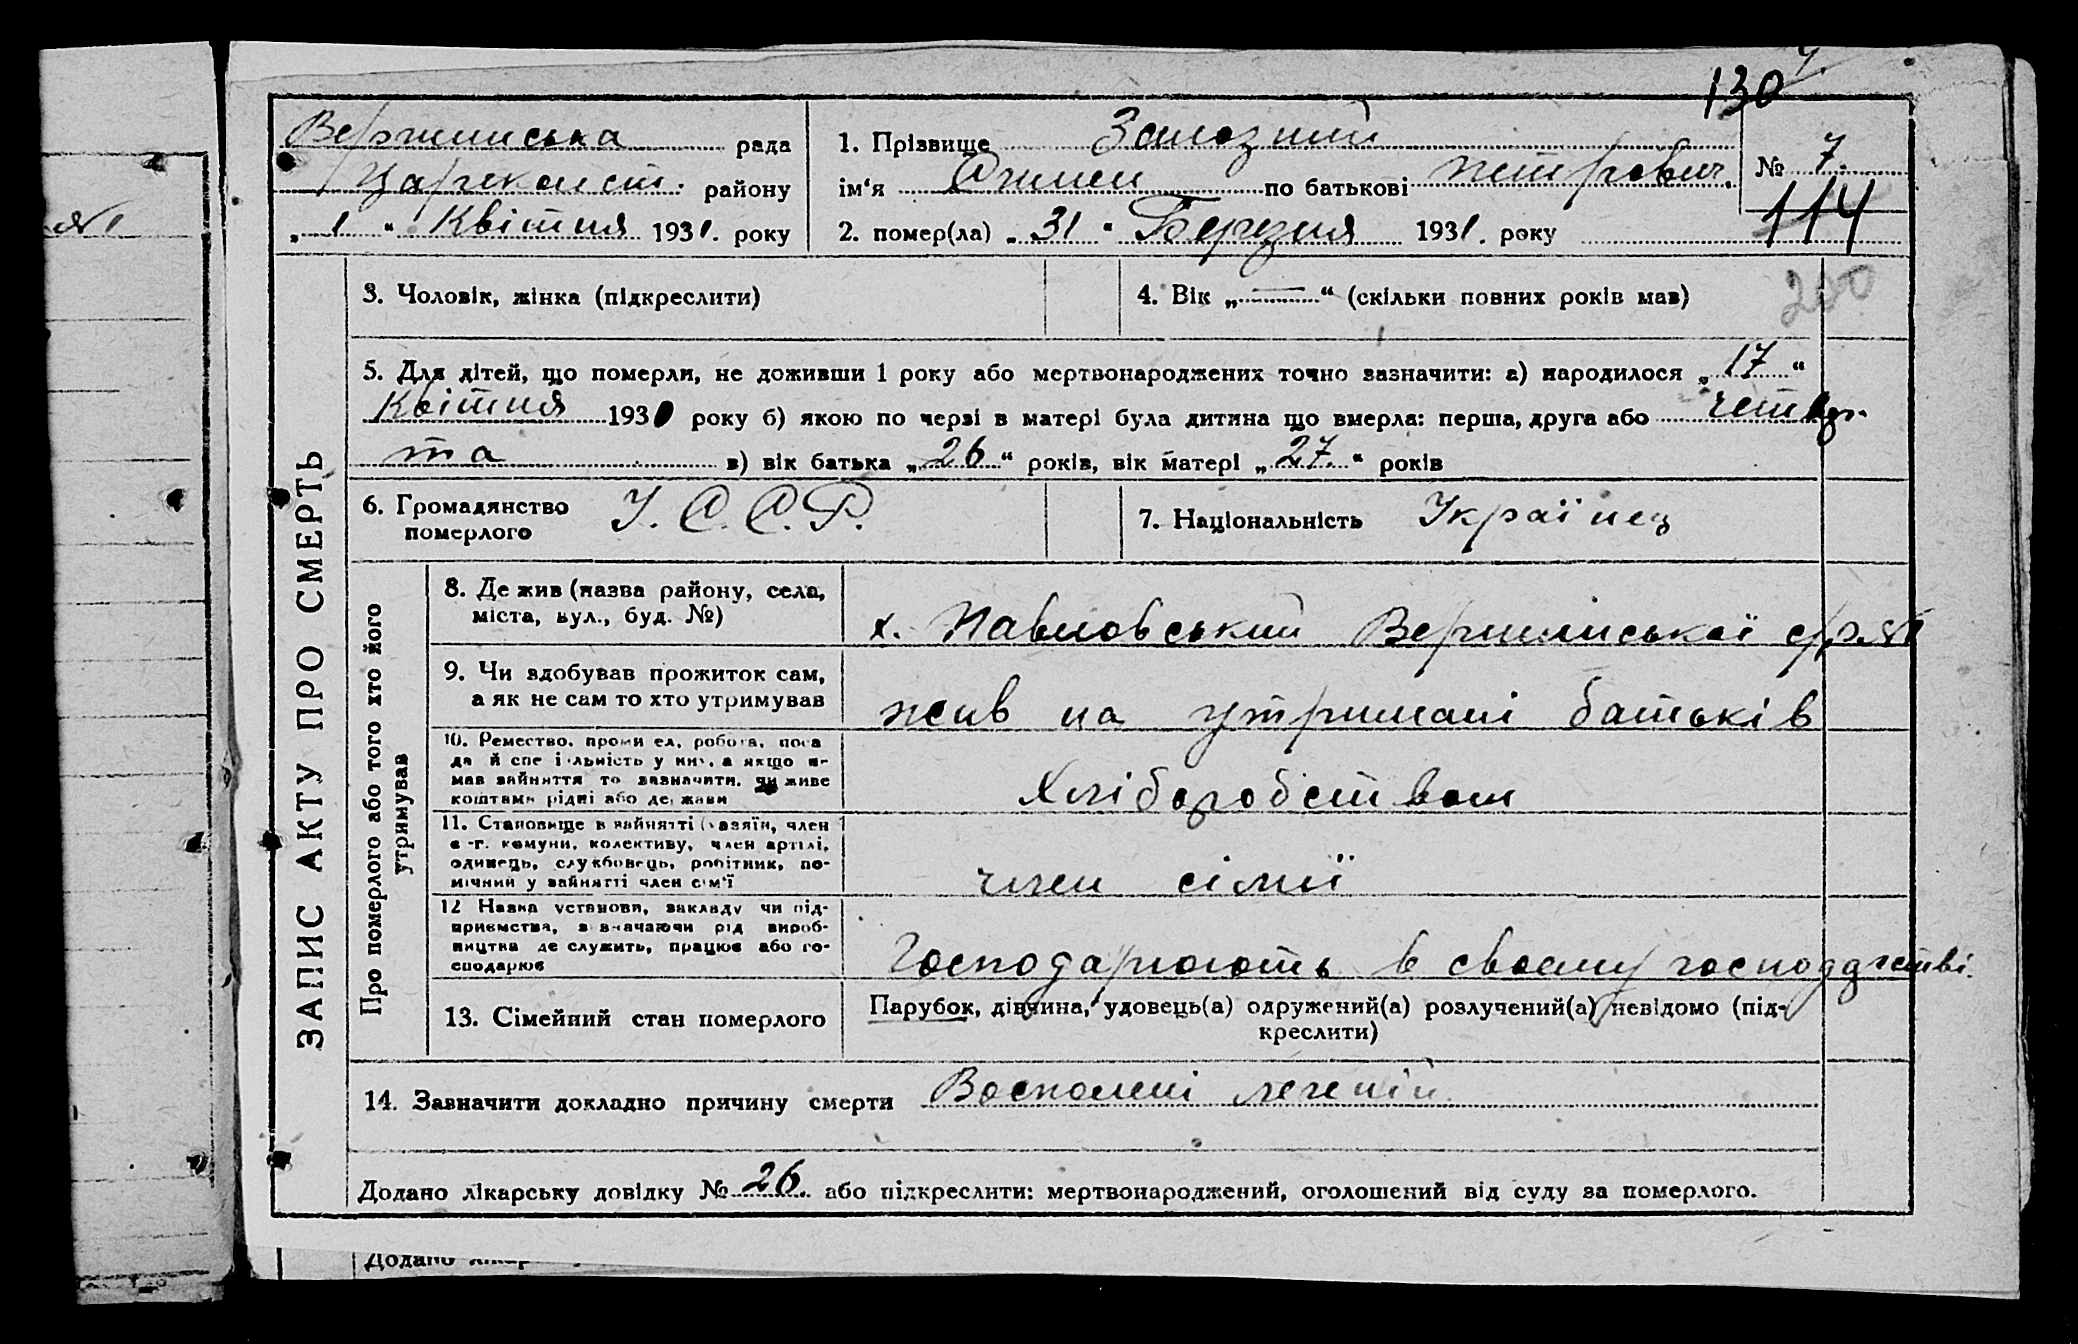 130
Вершинська рада
Царичанськ. району
„ 1 “ Квітня 1931. року
1. Прізвище Залозний
ім‘я по батькові Петрович.
№ 7.
2. помер(ла) „ 31 “ Березня 1931. року
114
200
ЗАПИС АКТУ ПРО СМЕРТЬ
3. Чоловік, жінка (підкреслити)
4. Вік „ — “ (скільки повних років мав)
5. Для дітей, що померли, не доживши 1 року або мертвонароджених точно зазначити: а) народилося „ 17 “
Квітня 1930 року б) якою по черзі в матері була дитина що вмерла: перша, друга або четвер-
та в) вік батька „ 26 “ років, вік матері „ 27. “ років
6. Громадянство
померлого У. С. С. Р.
7. Національність Українец
Про померлого або того хто його
утримував
8. Де жив (назва району, села,
міста, вул., буд. №)
х. Павловський Вершинської с/ради
9. Чи здобував прожиток сам,
а як не сам то хто утримував
жив на утримані батьків
10. Ремество, промисел, робота, поса
да й спеціальність у них, а якщо не
мав зайняття то зазначити, чи живе
коштами рідні або держави
Хліборобством
11. Становище в зайнятті (хазяїн, член
с-г. комуни, колективу, член артілі,
одинець, службовець, робітник, по-
мічний у зайнятті член сім'ї
член сімії
12 Назва установи, закладу чи під-
приємства, зазначаючи рід вироб-
ництва де служить, працює або го-
сподарює
Господарюють в своєму господарстві.
13. Сімейний стан померлого
Парубок, дівчина, удовець(а) одружений(а) розлучений(а) невідомо (під-
креслити)
14. Зазначити докладно причину смерти Восполені легеній
Додано лікарську довідку № 26. або підкреслити: мертвонароджений, оголошений від суду за померлого.